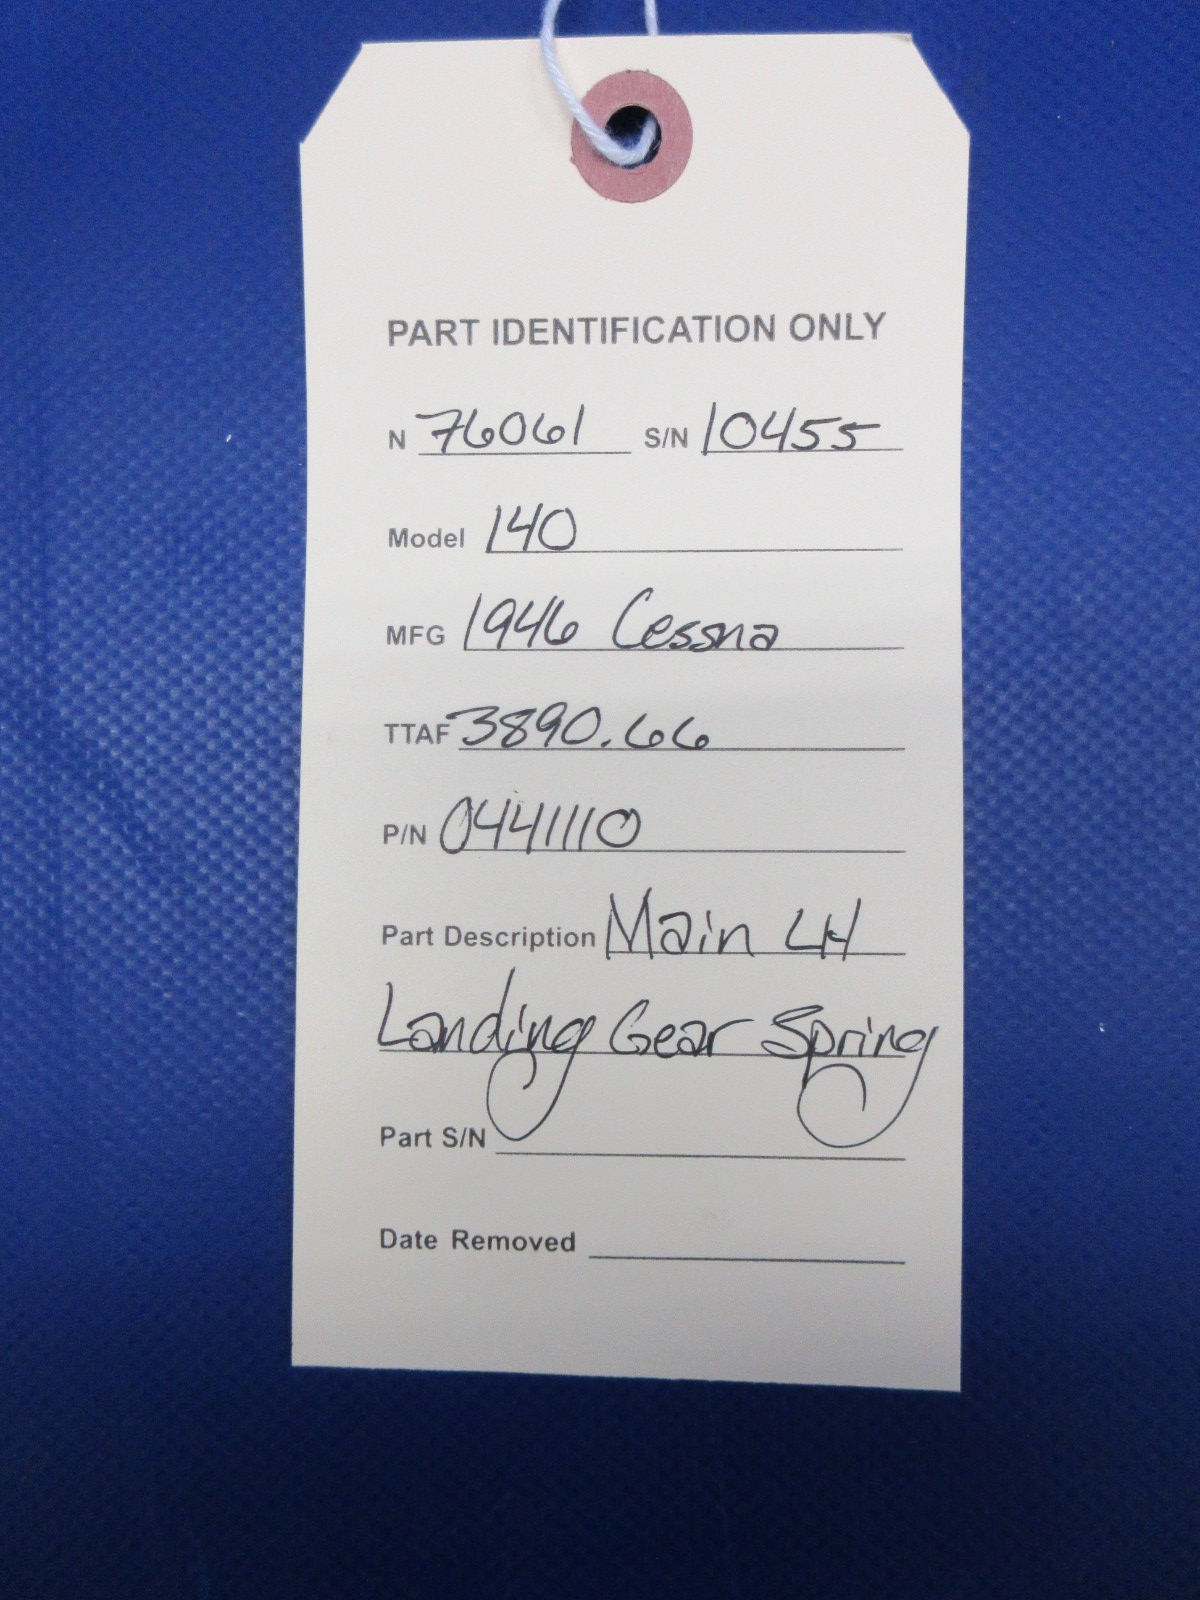 PART IDENTIFICATION ONLY
N 76061 S/N 10455
Model 140
MFG 1946 Cessna
TTAF 3890.66
P/N 0441110
Part Description Main LH
Landing Gear Spring
Part S/N
Date Removed